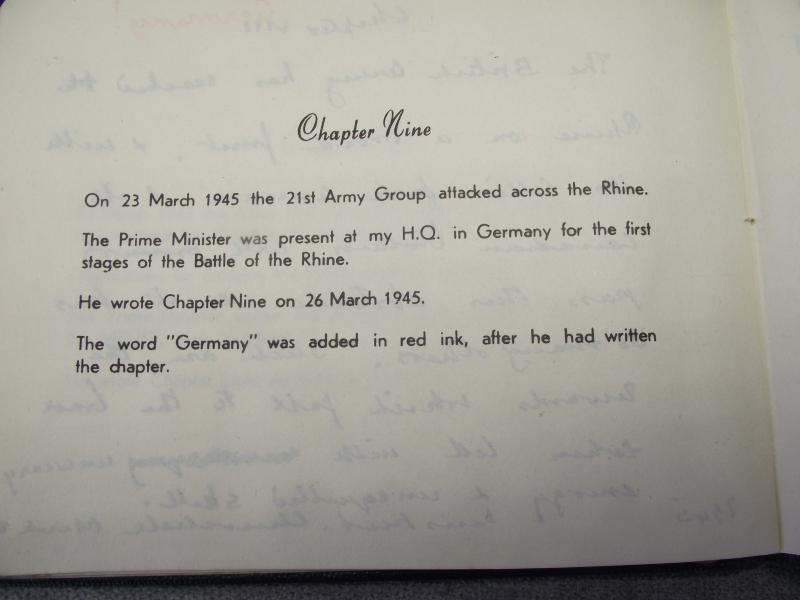 Chapter Nine
On 23 March 1945 the 21st Army Group attacked across the Rhine.
The Prime Minister was present at my H.Q. in Germany for the first
stages of the Battle of the Rhine.
He wrote Chapter Nine on 26 March 1945.
The word "Germany" was added in red ink, after he had written
the chapter.